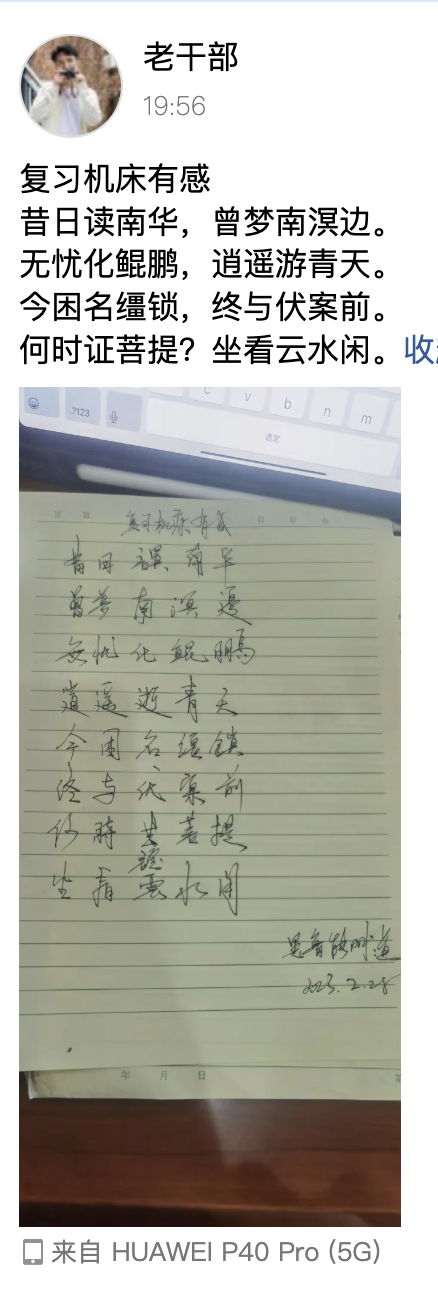 老干部
19:56
复习机床有感
昔日读南华，曾梦南溟边。
无忧化鲲鹏，逍遥游青天。
今困名缰锁，终与伏案前。
何时证菩提？坐看云水闲。收
c v b n m
.?123
选定
复习机床有感
昔日读南华
曾梦南溟邊
無忧化鲲鹏
逍遥遊青天
今困名缰鎖
终与伏案前
何時菩提
證
坐看雲水闲
2023.2.28
年 月 日
第
来自 HUAWEI P40 Pro (5G)